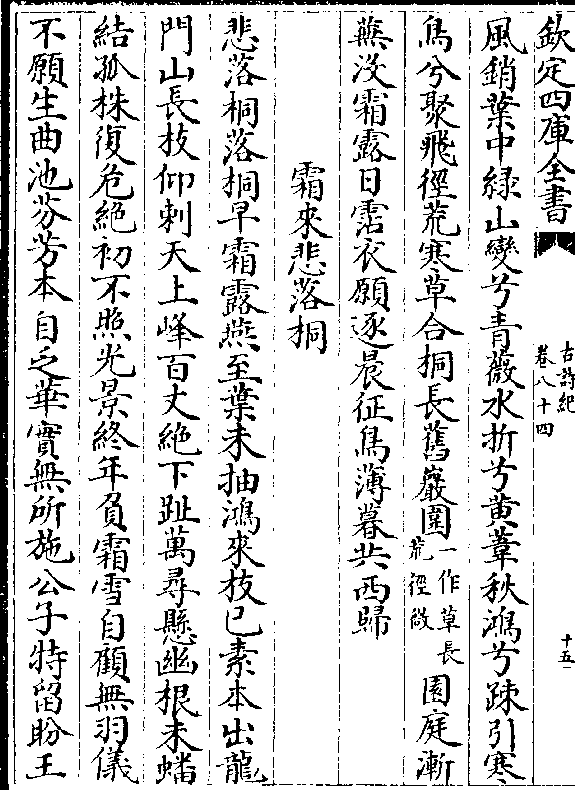 欽定四庫全書
古詩紀
卷八十四
十五
風銷葉中綠山變兮青薇水折兮黃葦秋鴻兮踈引寒
鳥兮聚飛徑荒寒草合桐長舊巖圍一作草長荒徑微園庭漸
蕪没霜露日霑衣願逐晨征鳥薄暮共西歸
霜來悲落桐
悲落桐落桐早霜露燕至葉未抽鴻來枝已素本出龍
門山長枝仰刺天上峰百丈絶下趾萬尋懸幽根未蟠
結孤株復危絶初不照光景終年負霜雪自顧無羽儀
不願生曲池芬芳本自乏華實無所施公子特留盼王